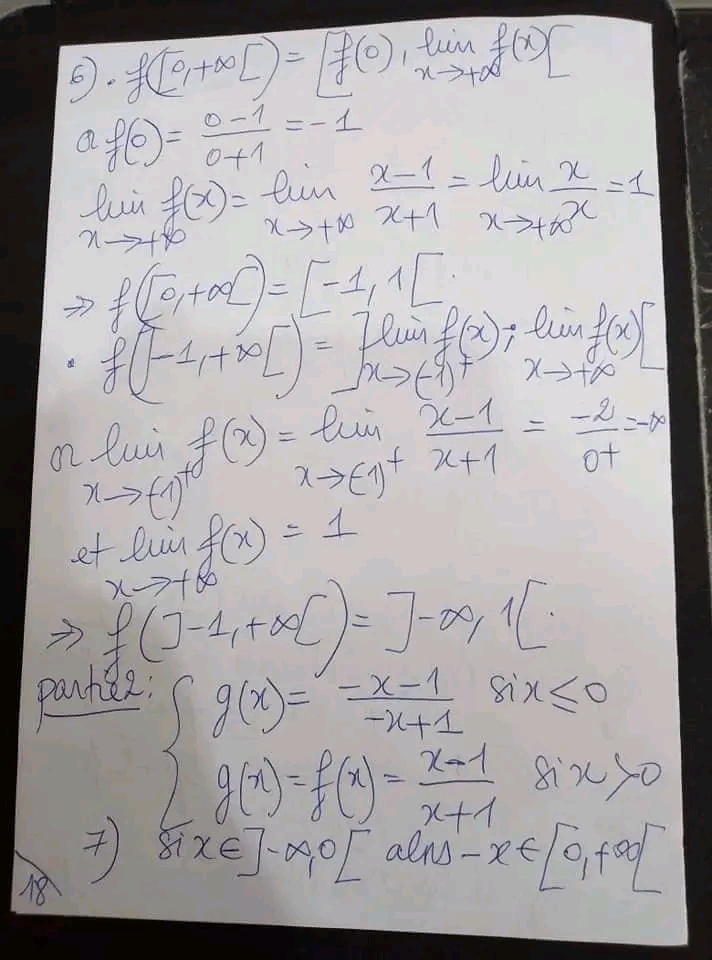 6) . f([0,+∞[) = [f(0), lim f(x)[
x→+∞
a f(0) = 0-1/0+1 = -1
lim f(x) = lim x-1/x+1 = lim x/x = 1
x→+∞ x→+∞ x→+∞
⇒ f([0,+∞[) = [-1,1[.
. f(]-1,+∞[) = ]lim f(x); lim f(x)[
x→(-1)⁺ x→+∞
or lim f(x) = lim x-1/x+1 = -2/0+ = -∞
x→(-1)⁺ x→(-1)⁺
et lim f(x) = 1
x→+∞
⇒ f(]-1,+∞[) = ]-∞,1[.
partie2: { g(x) = -x-1/-x+1 si x≤0
g(x) = f(x) = x-1/x+1 si x>0
7) si x∈]-∞,0[ alors -x∈[0,+∞[
18